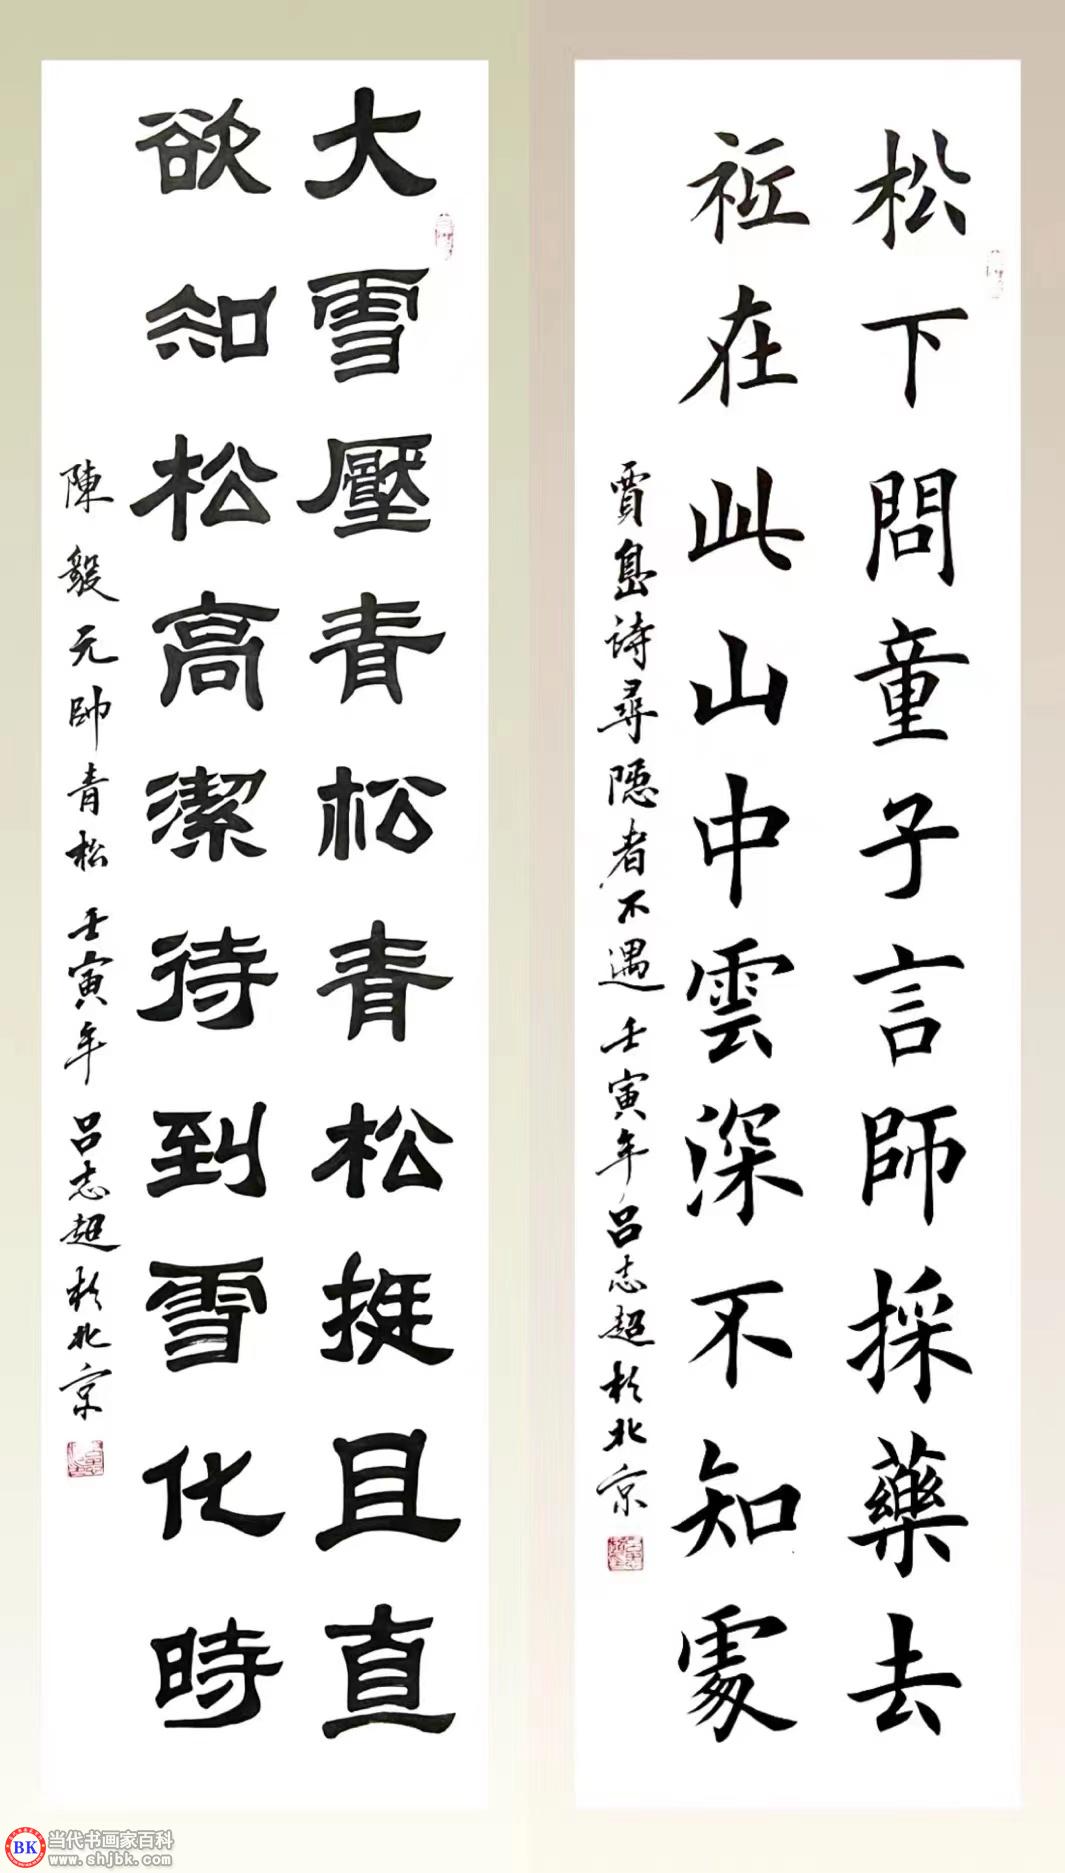 松下問童子言師採藥去
祇在此山中雲深不知處
賈島詩尋隱者不遇 壬寅年呂志超於北京
大雪壓青松青松挺且直
欲知松高潔待到雪化時
陳毅元帥青松 壬寅年 呂志超於北京
BK 当代书画家百科
www.shjbk.com